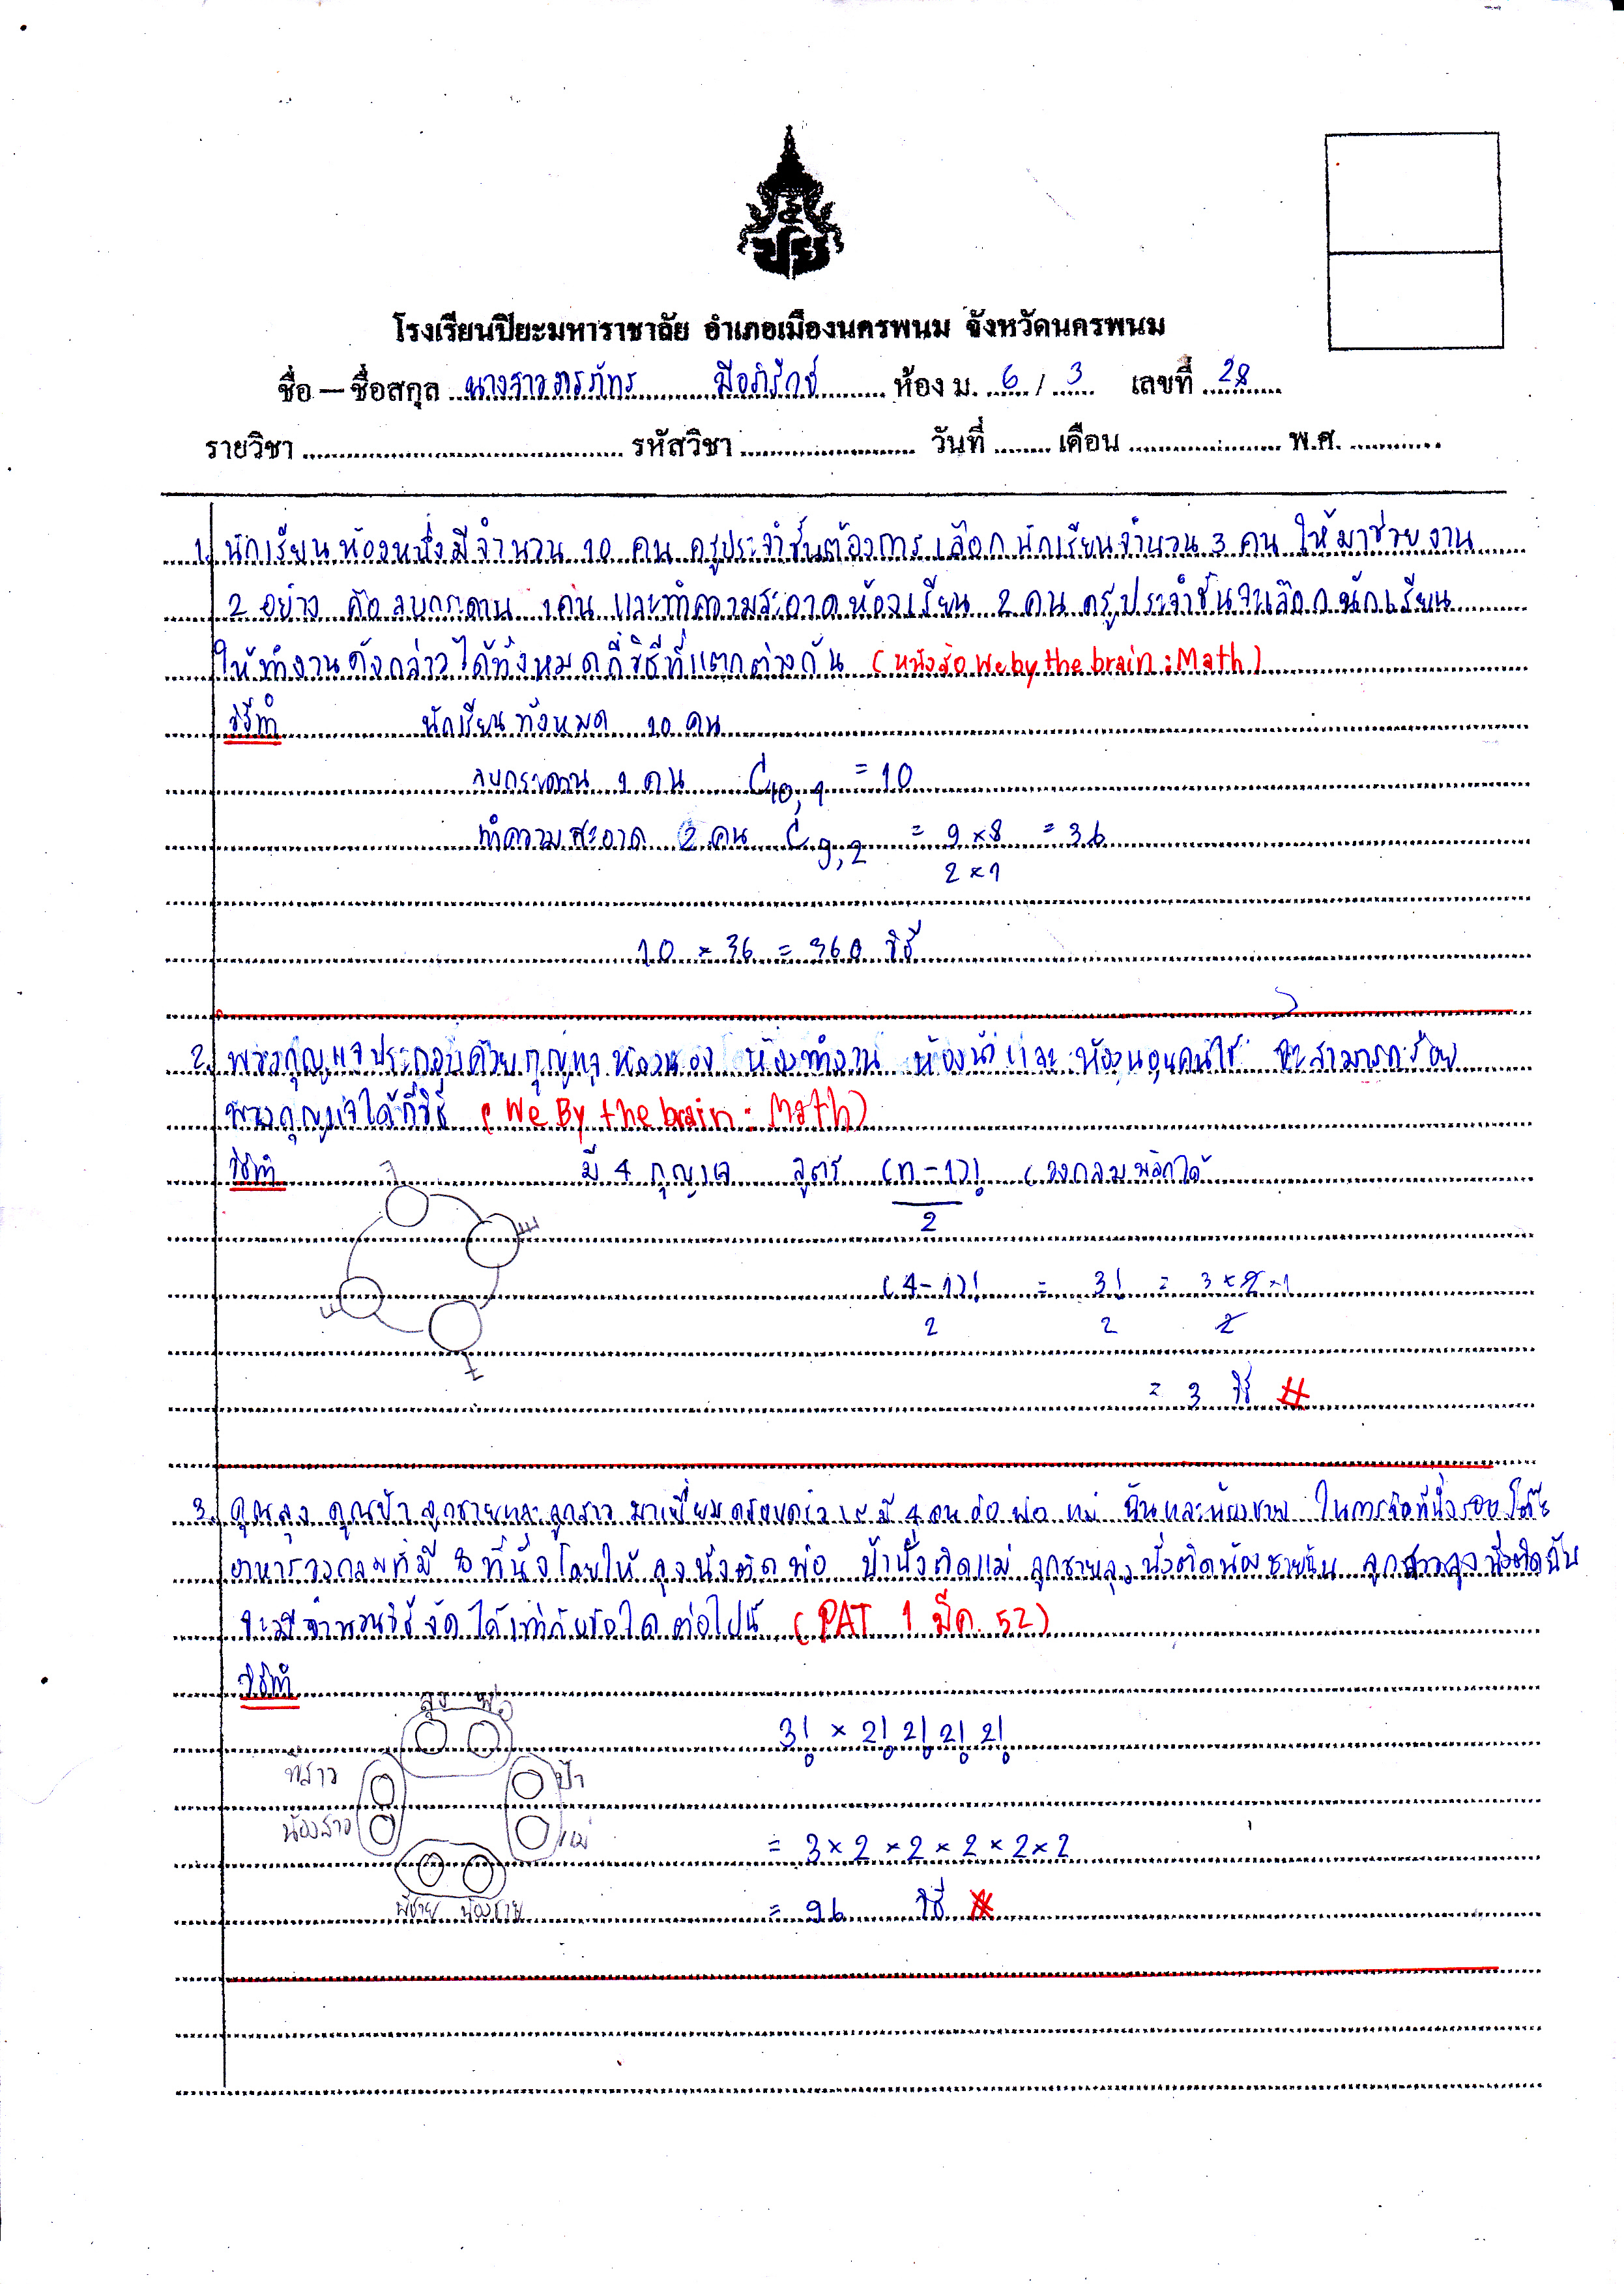 โรงเรียนปิยะมหาราชาลัย อำเภอเมืองนครพนม จังหวัดนครพนม
ชื่อ – ชื่อสกุล นางสาวภรภัทร มีอภิรักษ์ ห้อง ม. 6 / 3 เลขที่ 28
รายวิชา รหัสวิชา วันที่ เดือน พ.ศ.
1. นักเรียนห้องหนึ่งมีจำนวน 10 คน ครูประจำชั้นต้องการเลือกนักเรียนจำนวน 3 คน ให้มาช่วยงาน
2 อย่าง คือ ลบกระดาน 1 คน และทำความสะอาดห้องเรียน 2 คน ครูประจำชั้นจะเลือกนักเรียน
ให้ทำงานดังกล่าวได้ทั้งหมดกี่วิธีที่แตกต่างกัน (หนังสือ We by the brain : Math)
วิธีทำ นักเรียนทั้งหมด 10 คน
ลบกระดาน 1 คน C10,1 = 10
ทำความสะอาด 2 คน C9,2 = 9 × 8 = 36
2 × 1
10 × 36 = 360 วิธี
2. พวงกุญแจประกอบด้วยกุญแจห้องนอน ห้องทำงาน ห้องน้ำ และห้องนอนคนใช้ จะสามารถร้อย
พวงกุญแจได้กี่วิธี (We By the brain : Math)
วิธีทำ มี 4 กุญแจ สูตร (n-1)! (วงกลมพลิกได้
2
(4-1)! = 3! = 3 × 2 × 1
2 2 2
= 3 วิธี #
3. คุณลุง คุณป้า ลูกชายและลูกสาว มาเยี่ยมครอบครัวเรามี 4 คน คือ พ่อ แม่ ฉันและน้องชาย ในการจัดที่นั่งรอบโต๊ะ
อาหารวงกลมที่มี 8 ที่นั่งโดยให้ ลุงนั่งติดพ่อ ป้านั่งติดแม่ ลูกชายลุงนั่งติดน้องชายฉัน ลูกสาวลุงนั่งติดฉัน
จะมีจำนวนวิธีจัดได้เท่ากับข้อใดต่อไปนี้ (PAT 1 มีค. 52)
วิธีทำ
ลุง พ่อ
3! × 2! 2! 2! 2!
พี่สาว ป้า
น้องสาว แม่
= 3 × 2 × 2 × 2 × 2 × 2
พี่ชาย น้องชาย
= 96 วิธี #